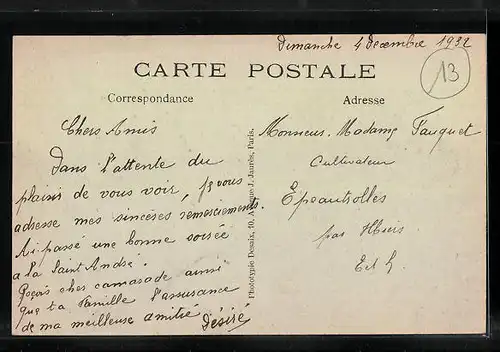 Dimanche 4 decembre 1932
13
CARTE POSTALE
Correspondance
Adresse
Chers Amis
Dans l'attente du
plaisir de vous voir, je vous
adresse mes sincères remerciements.
Ai passé une bonne soirée
a la Saint André.
Reçois cher camarade ainsi
que ta Famille l'assurance
de ma meilleure amitié
Désiré
Phototypie Desaix, 10, Avenue J. Jaurès, Paris.
Monsieur. Madame Fauquet
Cultivateur
Epeautrolles
par Illiers
E et L